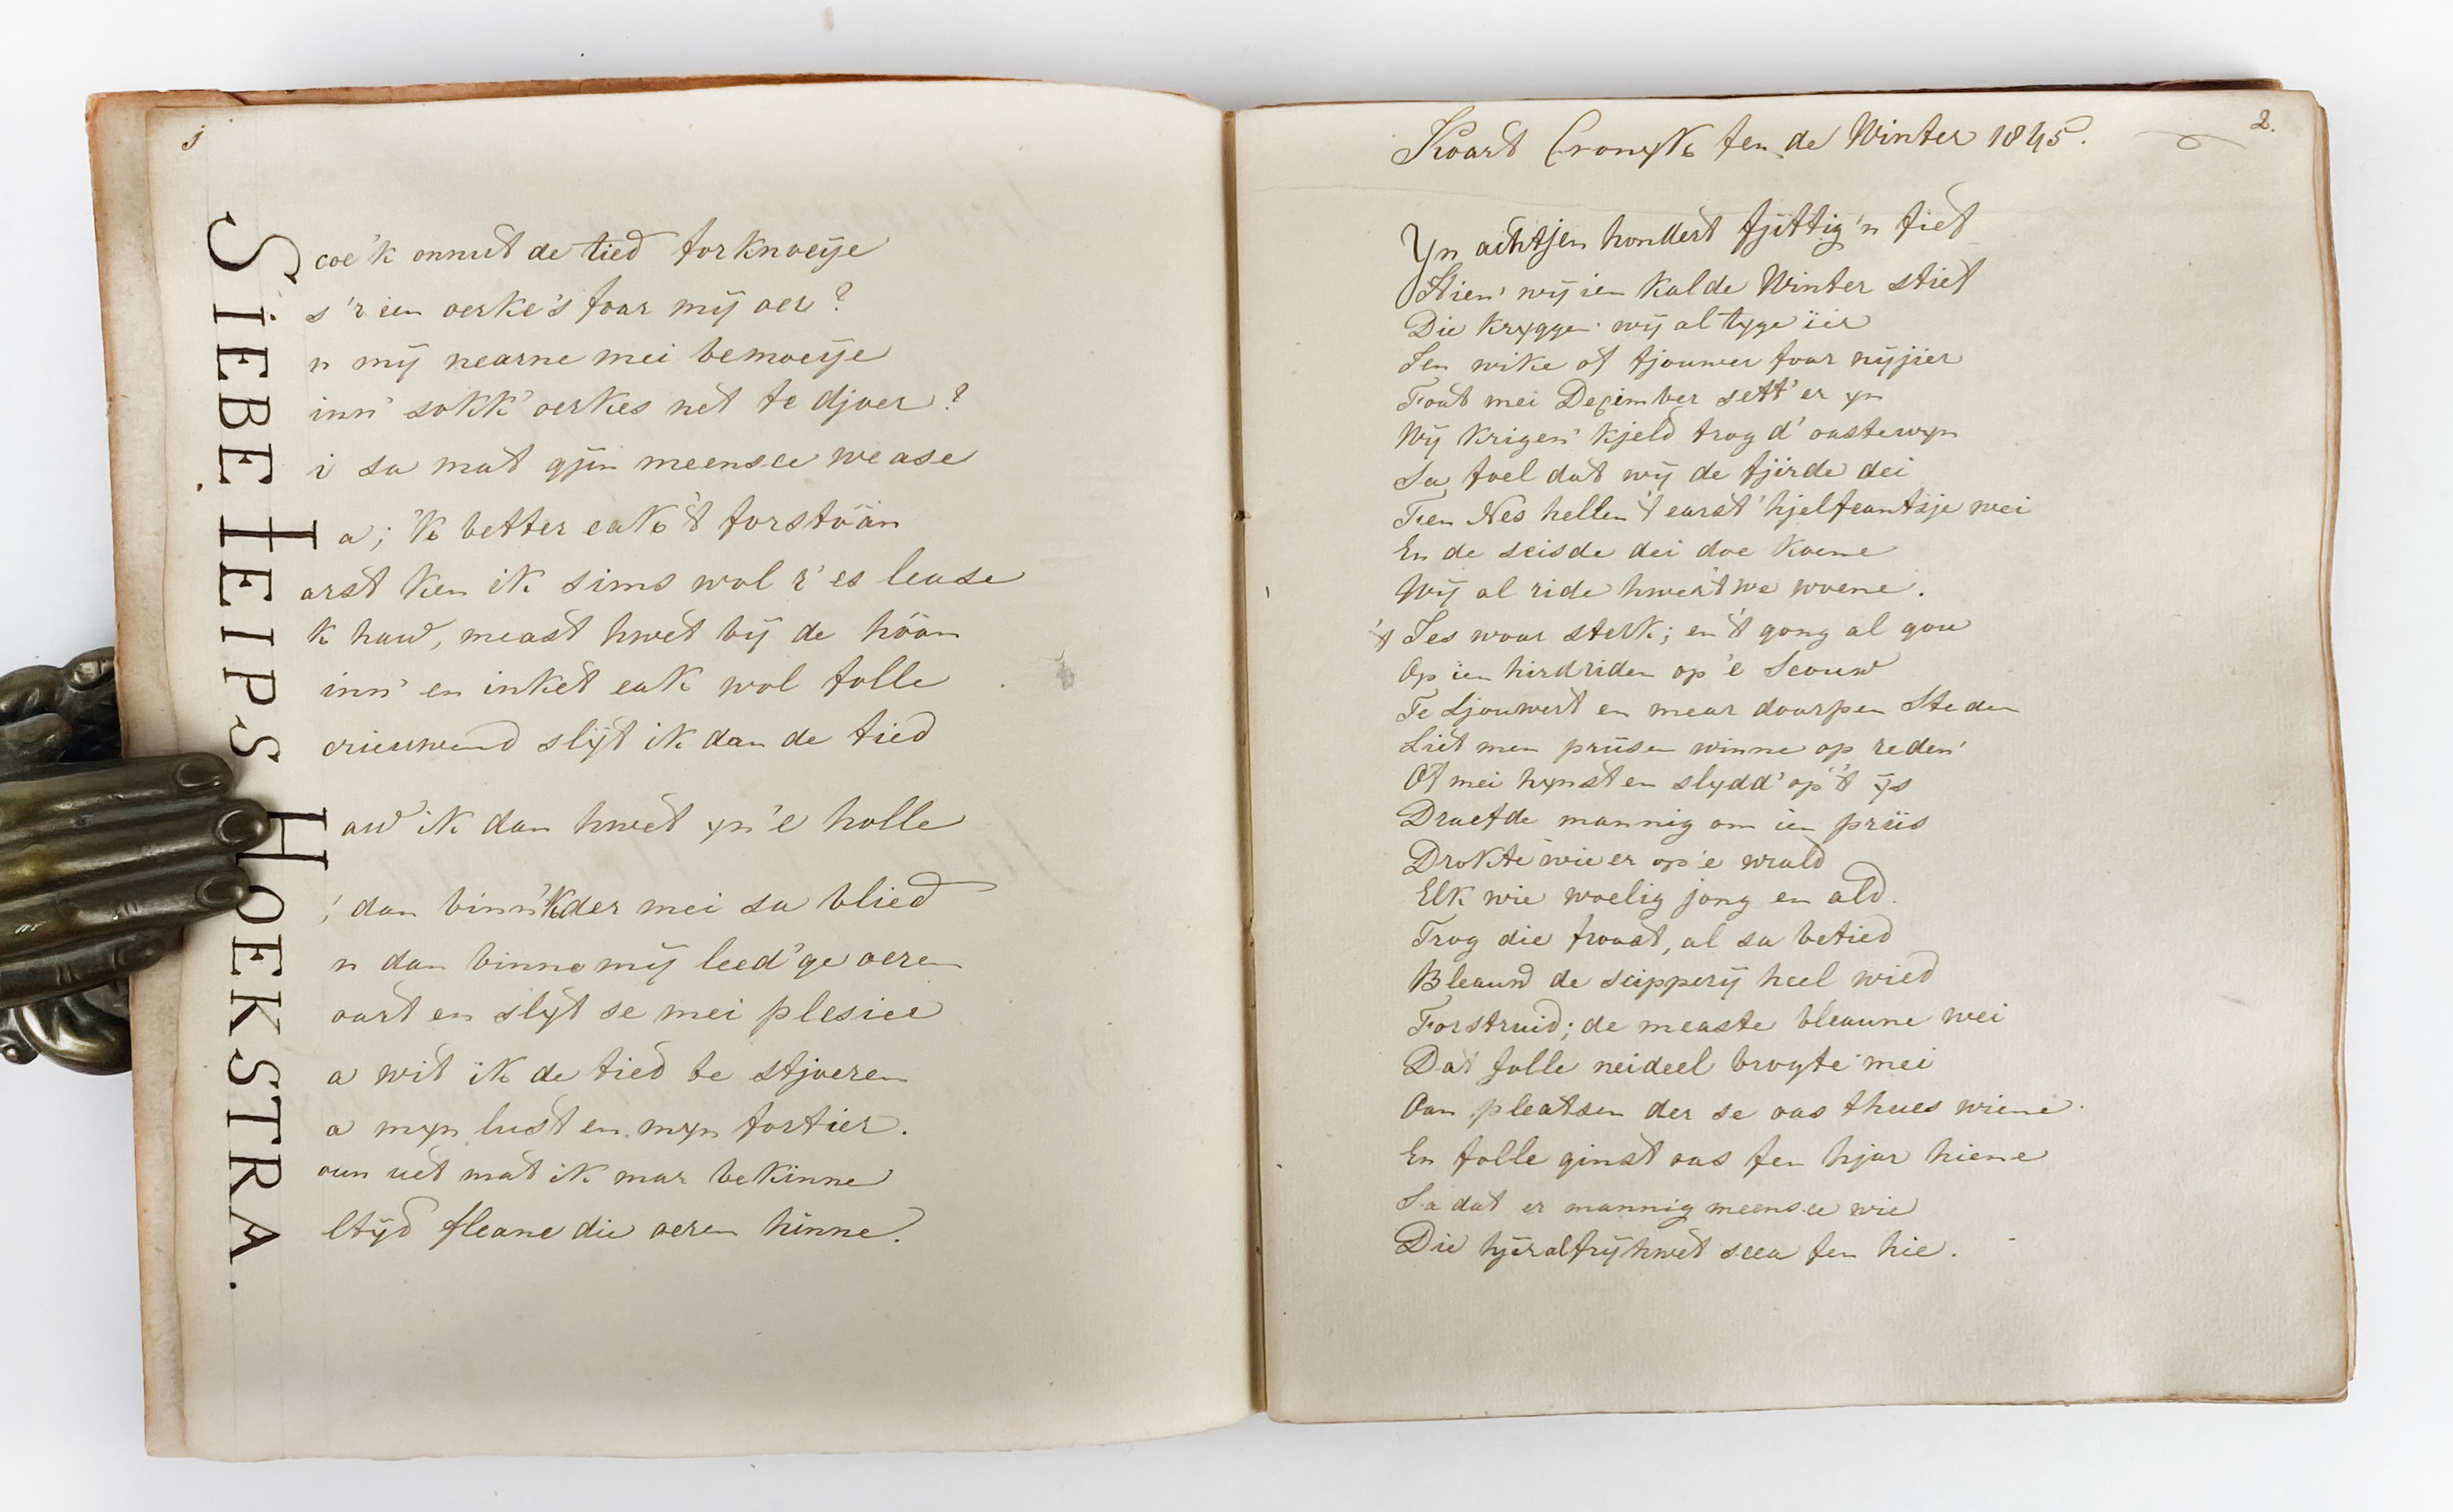 1
Scoe 'k onnut de tied forknoeije
Is 'r ien oerke's foar mij oer?
En mij nearne mei bemoeije
Binn' sokk' oerkes net te djoer?
Ei sa mat gjin meensce wease
Ja; 'k better eak 't forstöän
Earst ken ik sims wol r' es lease
Ik haw, meast hwet bij de höän
Pinn' en inket eak wol folle
Scrieuwend slijt ik dan de tied
Haw ik dan hwet yn 'e holle
O! dan binn' 'k der mei sa blied
En dan binne mij leed'ge oeren
Koart en slyt se mei plesier
Sa wit ik de tied te stjoeren
Ta myn lust en myn fortier.
Roun uet mat ik mar bekinne
Altijd fleane die oeren hinne.
2.
Koart Cronyk fen de Winter 1845.
Yn achtjen hondert fjittig 'n fief
Hien' wij ien kalde Winter stief
Die kryggen wij al tyge ier
Ien wike of fjouwer foar nijjier
Foat mei December sett' er yn
Wij krigen' kjeld trog d' oastewyn
Sa foel dat wij de fjirde dei
Fen Nes hellen 't earst' hjelfeantsje wei
En de seisde dei doe koene
Wij al ride hweit we woene.
't Ies woar sterk; en 't gong al gou
Op ien hirdriden op 'e Scouw
Te Ljouwert en mear doarpen Steden
Liet men priisen winne op reden'
Of mei hynst en slydd' op 't ijs
Draefde mannig om ien priis
Drokte wie er op 'e wrald
Elk wie woelig jong en ald.
Trog die froast, al sa betied
Bleaun de scipperij heel wied
Forstruid; de measte bleaune wei
Dat folle neideel brogte mei
Oan pleatsen der se oas thues wiene
En folle ginst oas fen hjar hiene
Sa dat er mannig meensce wie
Die hjir altijt hwet scea fen hie.